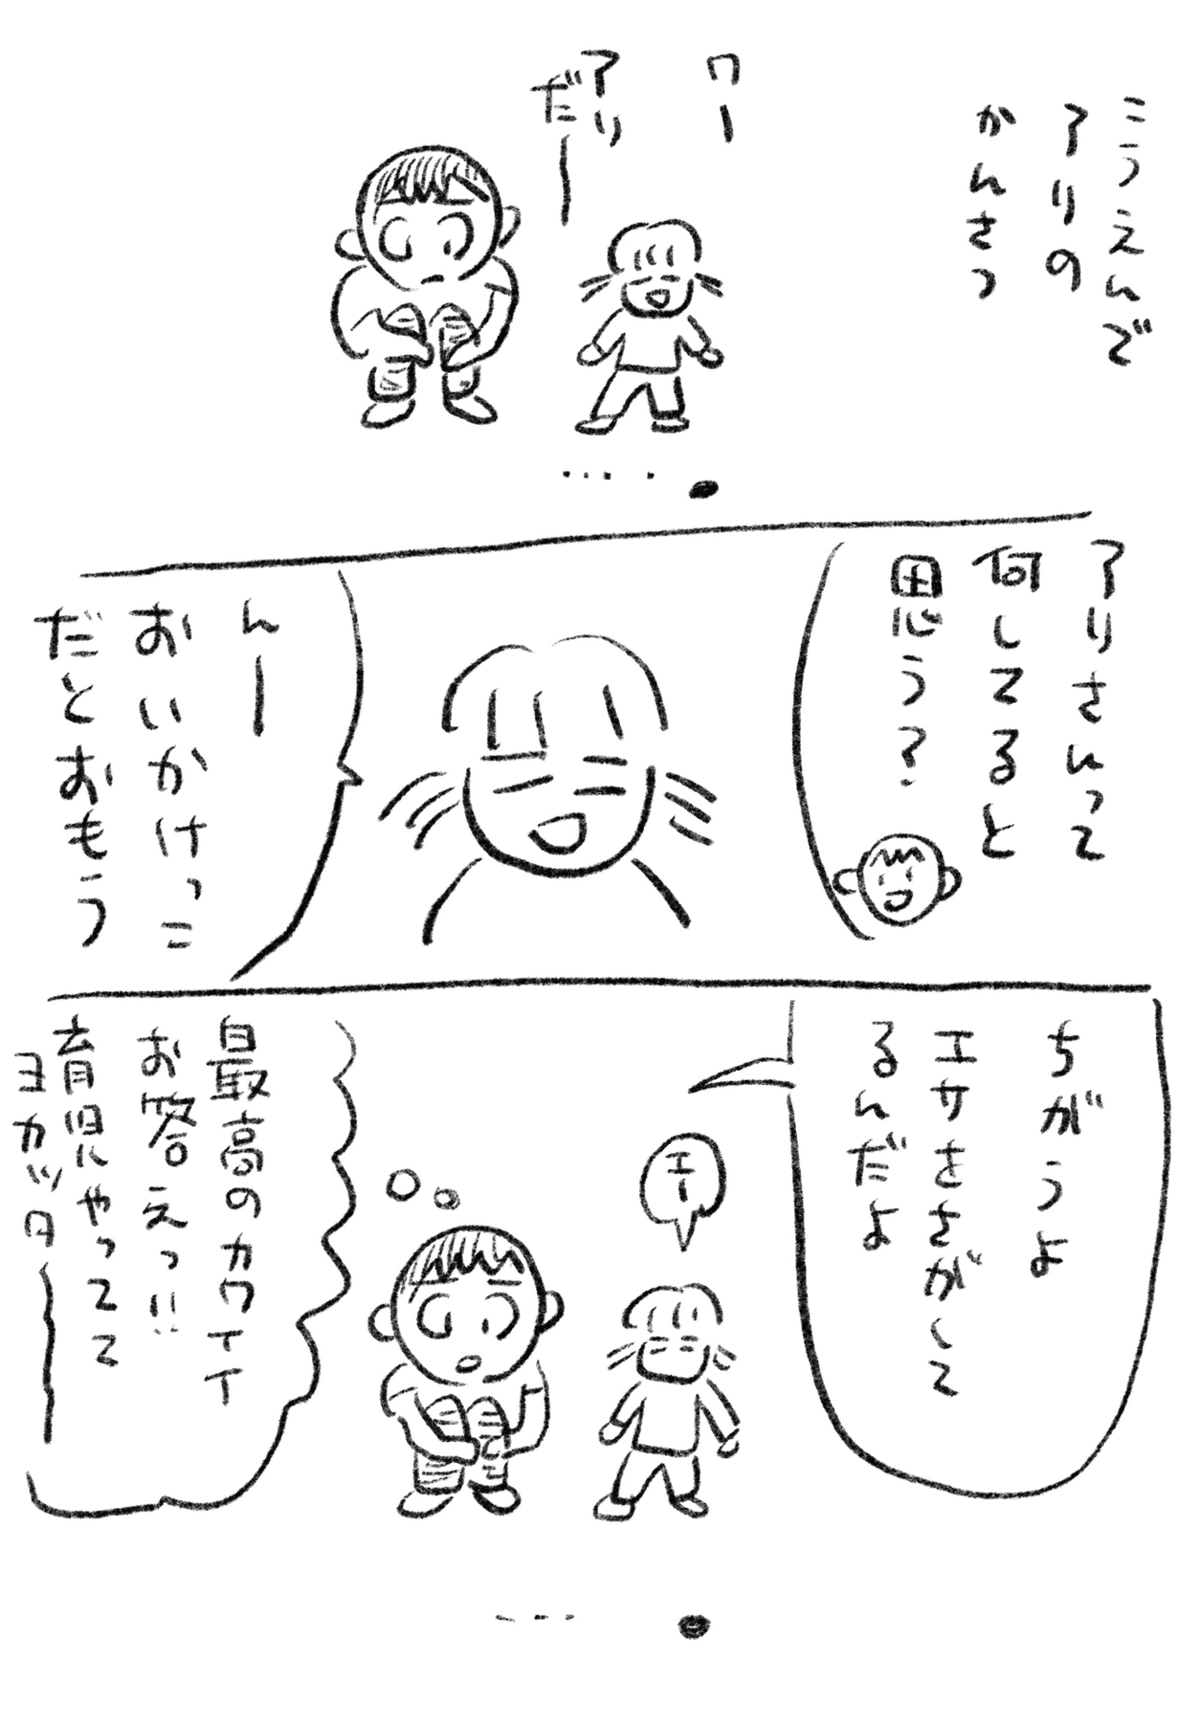 こうえんで
アリの
かんさつ
ワー
アリ
だー
アリさんって
何してると
思う?
んー
おいかけっこ
だとおもう
ちがうよ
エサをさがして
るんだよ
エー
最高のカワイイ
お答えっ!!
育児やってて
ヨカッター